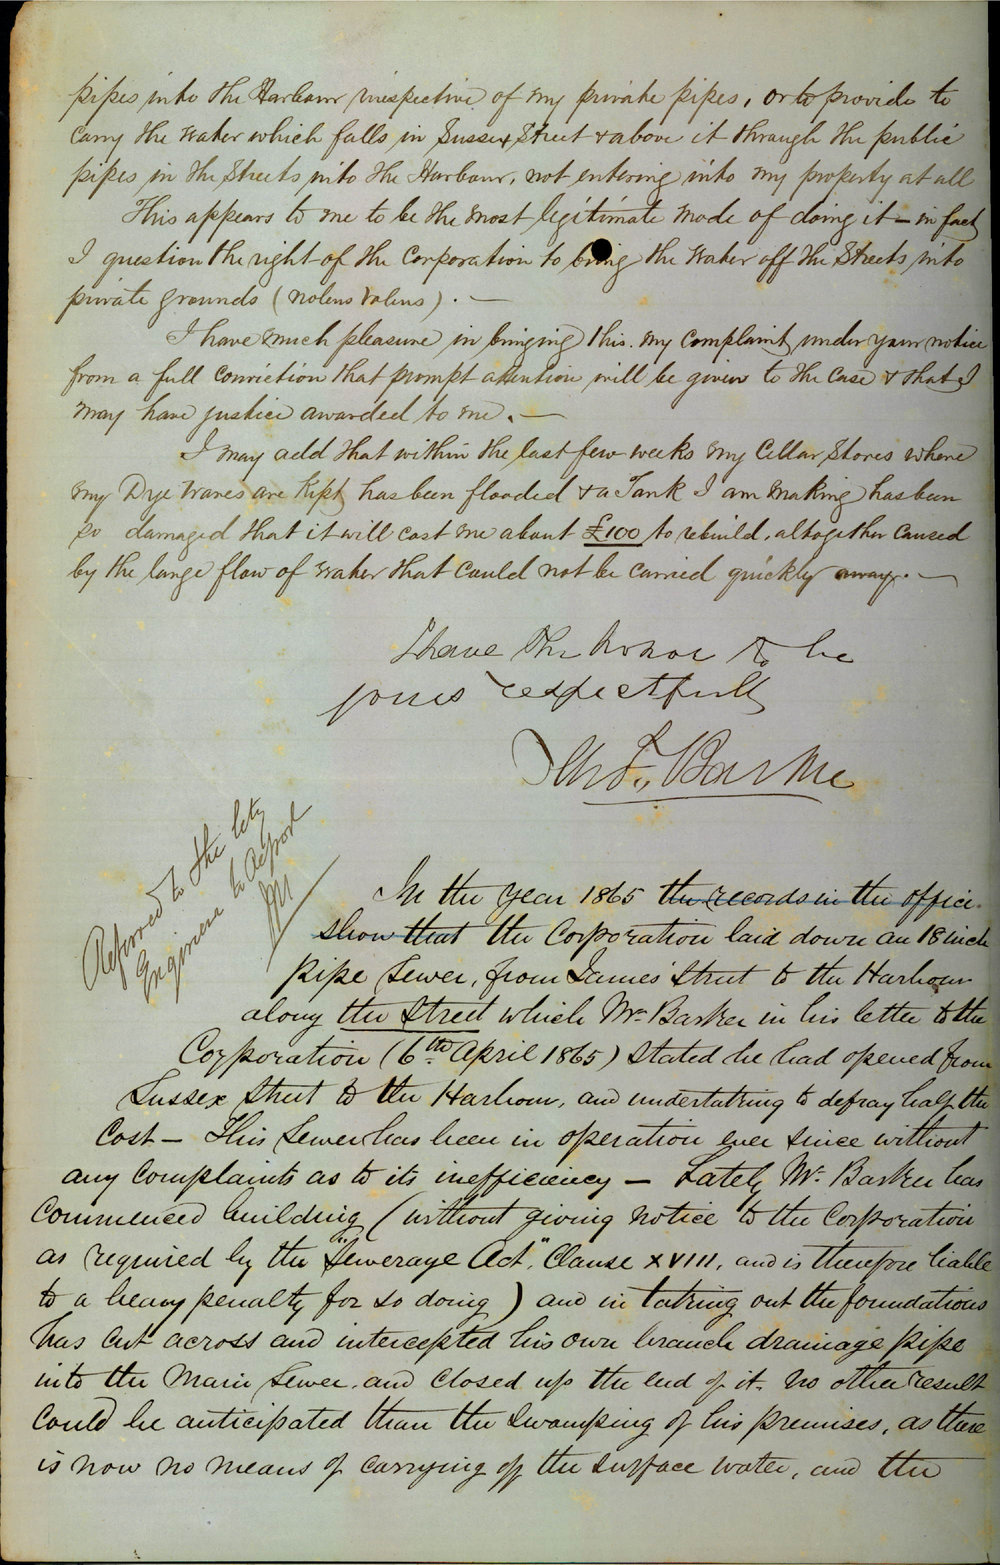 pipes into the Harbour irrespective of my private pipes, or to provide to
carry the water which falls in Sussex Street & above it through the public
pipes in the Streets into the Harbour, not entering into my property at all
This appears to me to be the most legitimate mode of doing it — in fact
I question the right of the Corporation to bring the water off the Streets into
private grounds (nolens volens). —
I have much pleasure in bringing this my complaint under your notice
from a full conviction that prompt attention will be given to the case & that I
may have justice awarded to me. —
I may add that within the last few weeks my Cellar Stores where
my Dye wares are kept has been flooded & a Tank I am making has been
so damaged that it will cost me about £100 to rebuild, altogether caused
by the large flow of water that could not be carried quickly away. —
I have the honor to be
yours respectfully
Thos. Barker
Referred to the City
Engineer to report
In the year 1865 the records in the office
show that the Corporation laid down an 18 inch
pipe Sewer, from James' Street to the Harbour
along the Street which Mr. Barker in his letter to the
Corporation (6th April 1865) stated he had opened from
Sussex Street to the Harbour, and undertaking to defray half the
cost — This Sewer has been in operation ever since without
any complaints as to its inefficiency — Lately Mr. Barker has
commenced building (without giving notice to the Corporation
as required by the "Sewerage Act" Clause XVIII, and is therefore liable
to a heavy penalty for so doing) and in taking out the foundations
has cut across and intercepted his own branch drainage pipe
into the Main Sewer, and closed up the end of it. no other result
could be anticipated than the swamping of his premises, as there
is now no means of carrying off the surface water, and the